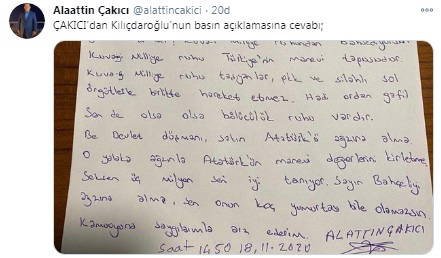 Alaattin Çakıcı @alattincakici · 20d
ÇAKICI'dan Kılıçdaroğlu'nun basın açıklamasına cevabı;
Kuvayi Milliye ruhu Türkiye'nin manevi tapusudur.
Kuva-yi Milliye ruhu taşıyanlar, pkk ve silahlı sol
örgütlerle birlikte hareket etmez. Hadi ordan gafil
Sen de olsa olsa bölücülük ruhu vardır.
Be Devlet düşmanı, sakın Atatürk'ü ağzına alma.
O yalaka ağzınla Atatürk'ün manevi değerlerini kirletme.
Seksen üç milyon seni iyi tanıyor. Sayın Bahçeliyi
ağzına alma, sen onun koç yumurtası bile olamazsın.
Kamuoyuna saygılarımla arz ederim. ALATTİN ÇAKICI
Saat 14 50 18.11.2020